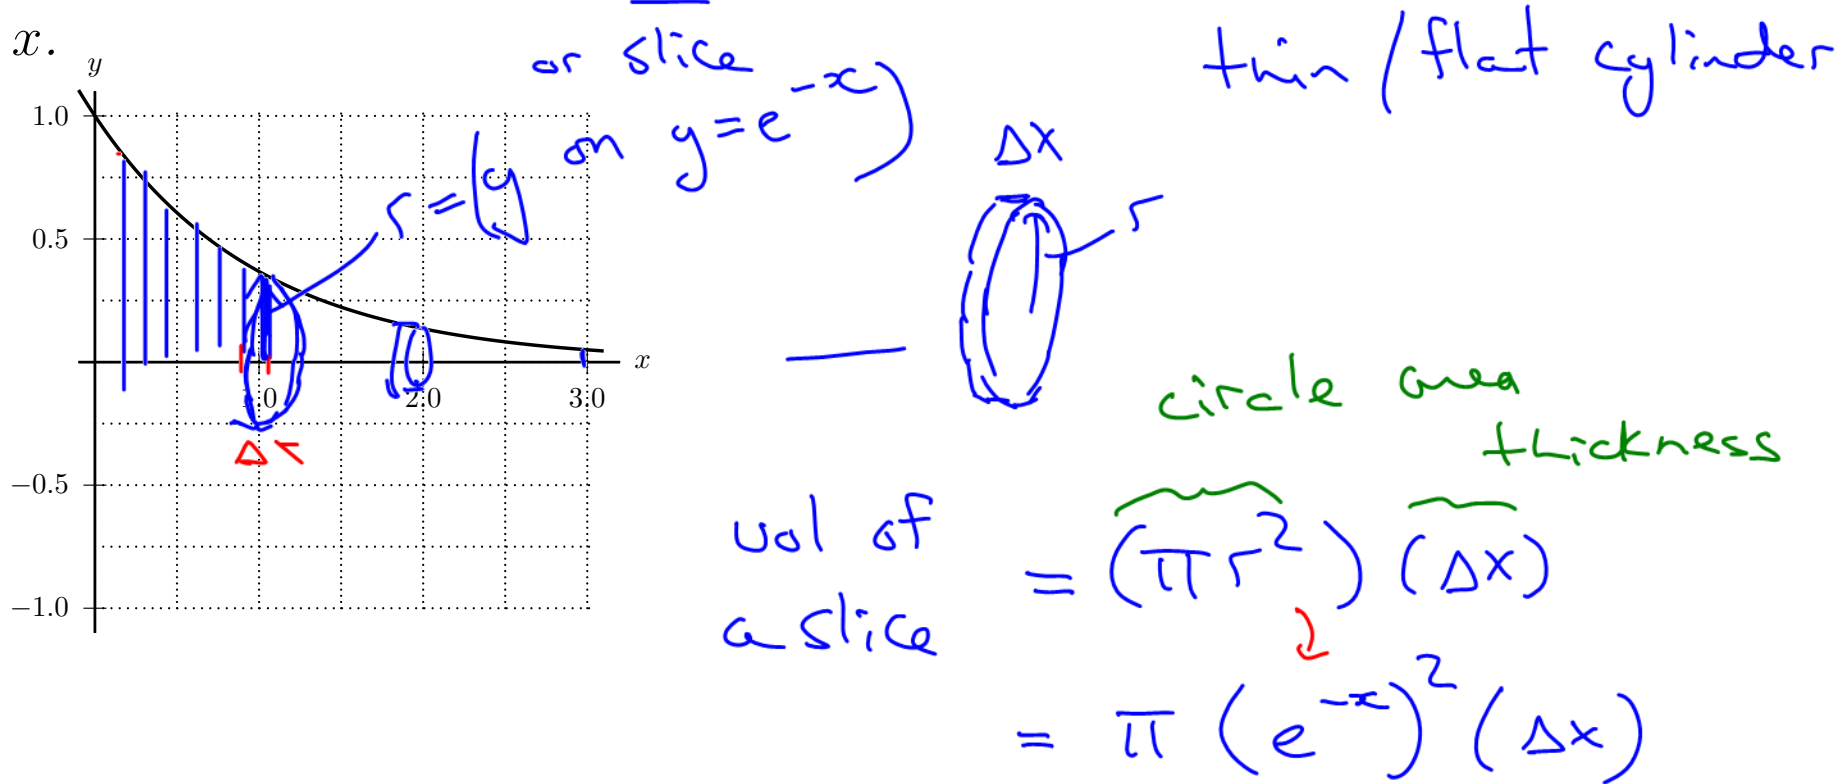 x.
y
1.0
0.5
−0.5
−1.0
1.0
2.0
3.0
x
Δx
r = y
or slice
on y = e^{-x})
thin / flat cylinder
Δx
r
circle area
thickness
vol of
a slice
= (π r²) (Δx)
= π (e^{-x})² (Δx)